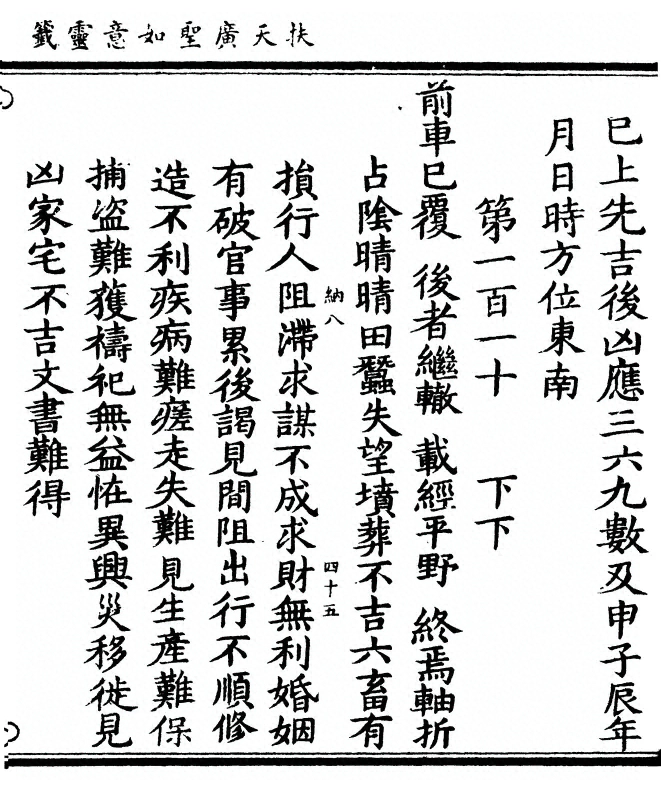 扶天廣聖如意靈籤
已上先吉後凶應三六九數及申子辰年
月日時方位東南
第一百一十 下下
前車已覆 後者繼轍 載經平野 終焉軸折
占陰晴晴田蠶失望墳葬不吉六畜有
損行人阻滯求謀不成求財無利婚姻
納八
四十五
有破官事累後謁見間阻出行不順修
造不利疾病難瘥走失難見生產難保
捕盜難獲禱祀無益恠異興災移徙見
凶家宅不吉文書難得